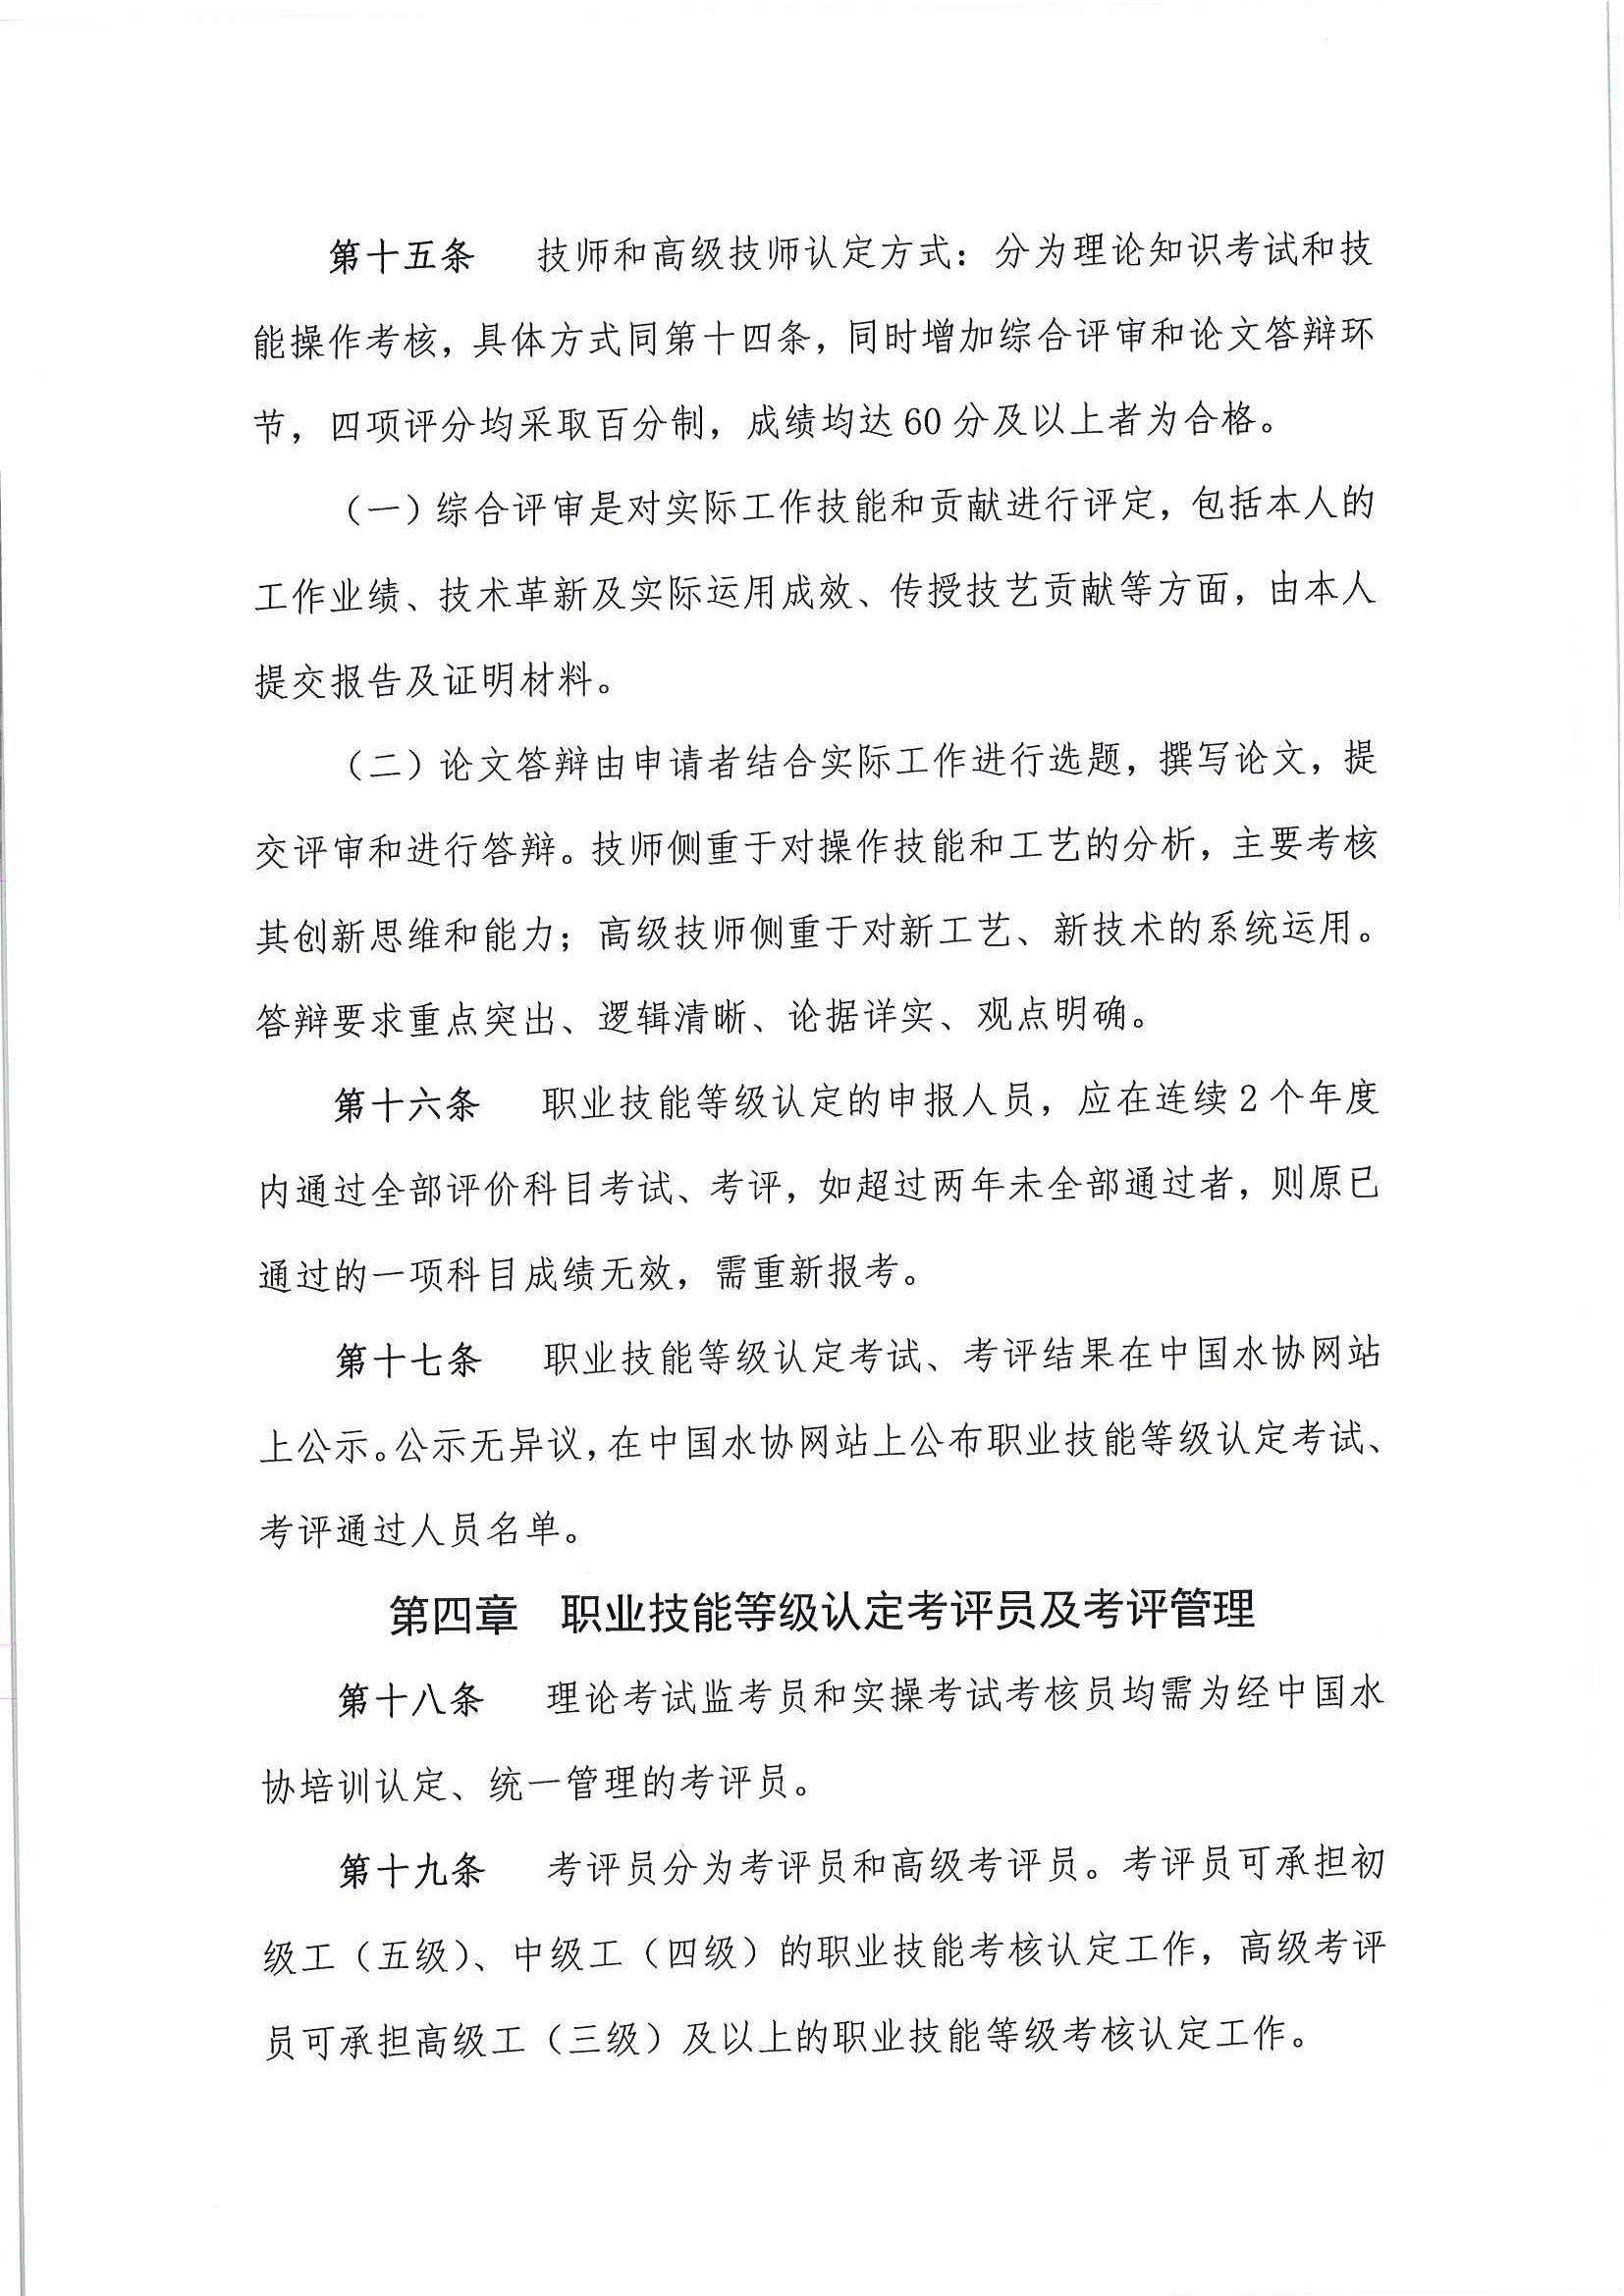 第十五条　技师和高级技师认定方式：分为理论知识考试和技
能操作考核，具体方式同第十四条，同时增加综合评审和论文答辩环
节，四项评分均采取百分制，成绩均达 60 分及以上者为合格。
（一）综合评审是对实际工作技能和贡献进行评定，包括本人的
工作业绩、技术革新及实际运用成效、传授技艺贡献等方面，由本人
提交报告及证明材料。
（二）论文答辩由申请者结合实际工作进行选题，撰写论文，提
交评审和进行答辩。技师侧重于对操作技能和工艺的分析，主要考核
其创新思维和能力；高级技师侧重于对新工艺、新技术的系统运用。
答辩要求重点突出、逻辑清晰、论据详实、观点明确。
第十六条　职业技能等级认定的申报人员，应在连续 2 个年度
内通过全部评价科目考试、考评，如超过两年未全部通过者，则原已
通过的一项科目成绩无效，需重新报考。
第十七条　职业技能等级认定考试、考评结果在中国水协网站
上公示。公示无异议，在中国水协网站上公布职业技能等级认定考试、
考评通过人员名单。
第四章　职业技能等级认定考评员及考评管理
第十八条　理论考试监考员和实操考试考核员均需为经中国水
协培训认定、统一管理的考评员。
第十九条　考评员分为考评员和高级考评员。考评员可承担初
级工（五级）、中级工（四级）的职业技能考核认定工作，高级考评
员可承担高级工（三级）及以上的职业技能等级考核认定工作。